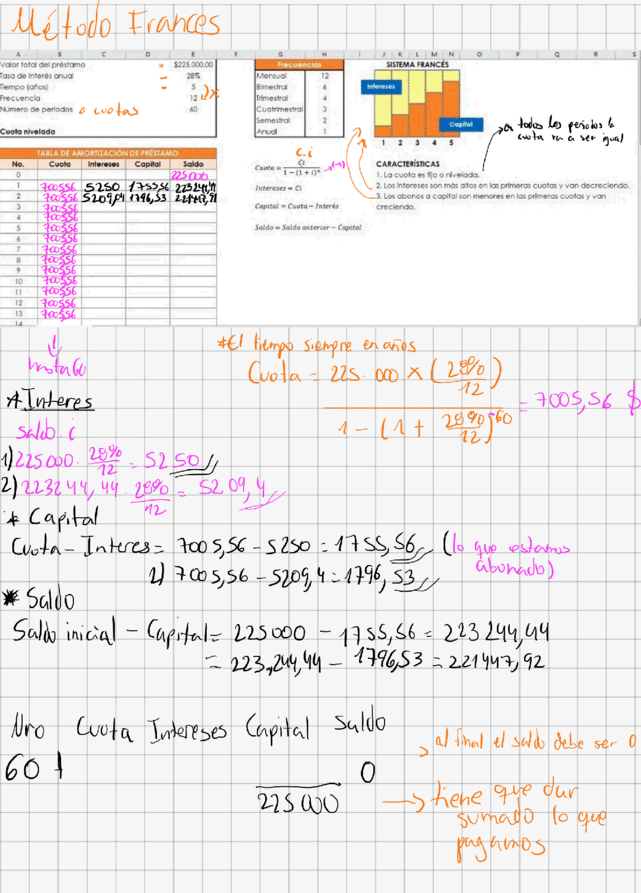 Método Frances
A B C D E F G H I J K L M N O P Q R S
Valor total del préstamo = $225.000.00
Tasa de interés anual = 28%
Tiempo (años) = 5
Frecuencia 12
Número de periodos o cuotas 60
Cuota nivelada
Frecuencias
Mensual 12
Bimestral 6
Trimestral 4
Cuatrimestral 3
Semestral 2
Anual 1
SISTEMA FRANCÉS
Intereses
Capital
1 2 3 4 5
en todos los periodos la
cuota va a ser igual
TABLA DE AMORTIZACIÓN DE PRÉSTAMO
No. Cuota Intereses Capital Saldo
0 225000
1 7005,56 5250 1755,56 223244,44
2 7005,56 5209,04 1796,53 221447,92
3 7005,56
4 7005,56
5 7005,56
6 7005,56
7 7005,56
8 7005,56
9 7005,56
10 7005,56
11 7005,56
12 7005,56
13 7005,56
14
C.i
Cuota = Ci / 1 − (1 + i)ⁿ (-n)
Intereses = Ci
Capital = Cuota − Interés
Saldo = Saldo anterior − Capital
CARACTERÍSTICAS
1. La cuota es fija o nivelada.
2. Los intereses son más altos en las primeras cuotas y van decreciendo.
3. Los abonos a capital son menores en las primeras cuotas y van
creciendo.
hasta 60
*El tiempo siempre en años
Cuota = 225.000 × (28%/12) / 1 − (1 + 28%/12)^-60 = 7005,56 $
*Interes
Saldo.i
1) 225000 . 28%/12 = 5250
2) 223244,44 . 28%/12 = 5209,4
* Capital
Cuota − Interes = 7005,56 − 5250 = 1755,56 (lo que estamos
abonado)
2) 7005,56 − 5209,4 = 1796,53
* Saldo
Saldo inicial − Capital = 225000 − 1755,56 = 223244,44
= 223,244,44 − 1796,53 = 221447,92
Nro Cuota Intereses Capital Saldo
60 0
225000
al final el saldo debe ser 0
tiene que dar
sumado lo que
pagamos